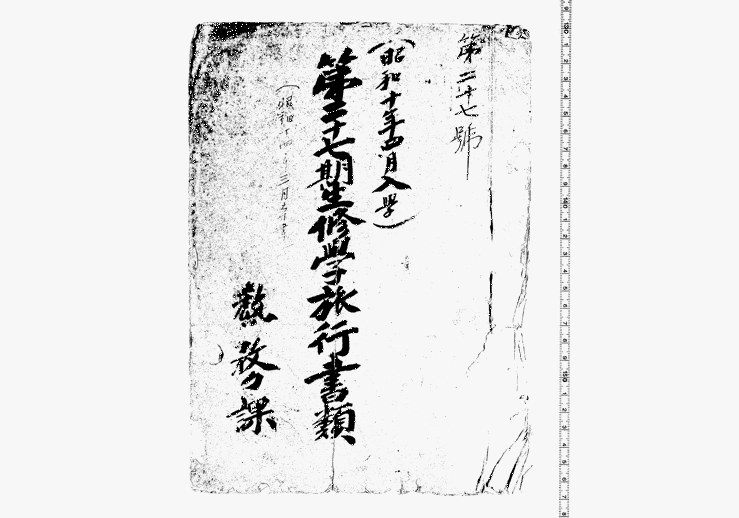 第二十七號
(昭和十年四月入學)
第二十七期生修學旅行書類
(昭和十四年三月卒業
教務課